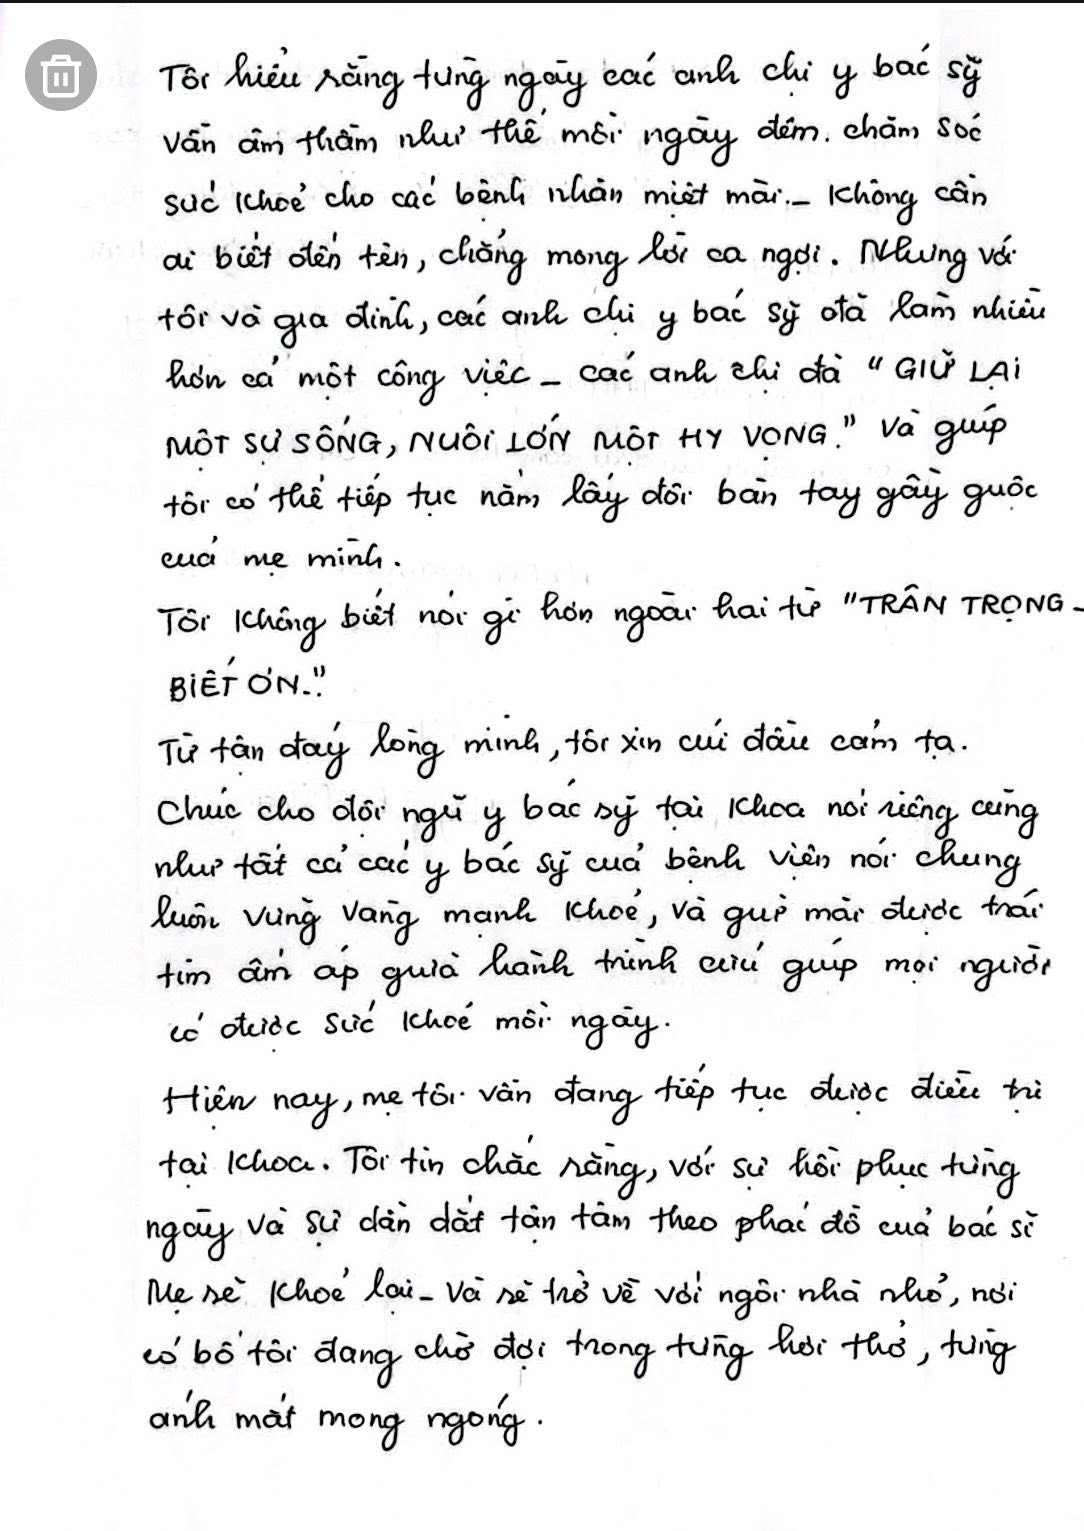 Tôi hiểu rằng từng ngày các anh chị y bác sỹ
vẫn âm thầm như thế mỗi ngày đêm. chăm sóc
sức khoẻ cho các bệnh nhân miệt mài.- Không cần
ai biết đến tên, chẳng mong lời ca ngợi. Nhưng với
tôi và gia đình, các anh chị y bác sỹ đã làm nhiều
hơn cả một công việc - các anh chị đã "GIỮ LẠI
MỘT SỰ SỐNG, NUÔI LỚN MỘT HY VỌNG." và giúp
tôi có thể tiếp tục nắm lấy đôi bàn tay gầy guộc
của mẹ mình.
Tôi không biết nói gì hơn ngoài hai từ "TRÂN TRỌNG -
BIẾT ƠN."
Từ tận đáy lòng mình, tôi xin cúi đầu cảm tạ.
Chúc cho đội ngũ y bác sỹ tại Khoa nói riêng cũng
như tất cả các y bác sỹ của bệnh viện nói chung
luôn vững vàng mạnh khoẻ, và giữ mãi được trái
tim ấm áp giữa hành trình cứu giúp mọi người
có được sức khoẻ mỗi ngày.
Hiện nay, mẹ tôi vẫn đang tiếp tục được điều trị
tại Khoa. Tôi tin chắc rằng, với sự hồi phục từng
ngày và sự dẫn dắt tận tâm theo phác đồ của bác sĩ
Mẹ sẽ khoẻ lại - Và sẽ trở về với ngôi nhà nhỏ, nơi
có bố tôi đang chờ đợi trong từng hơi thở, từng
ánh mắt mong ngóng.